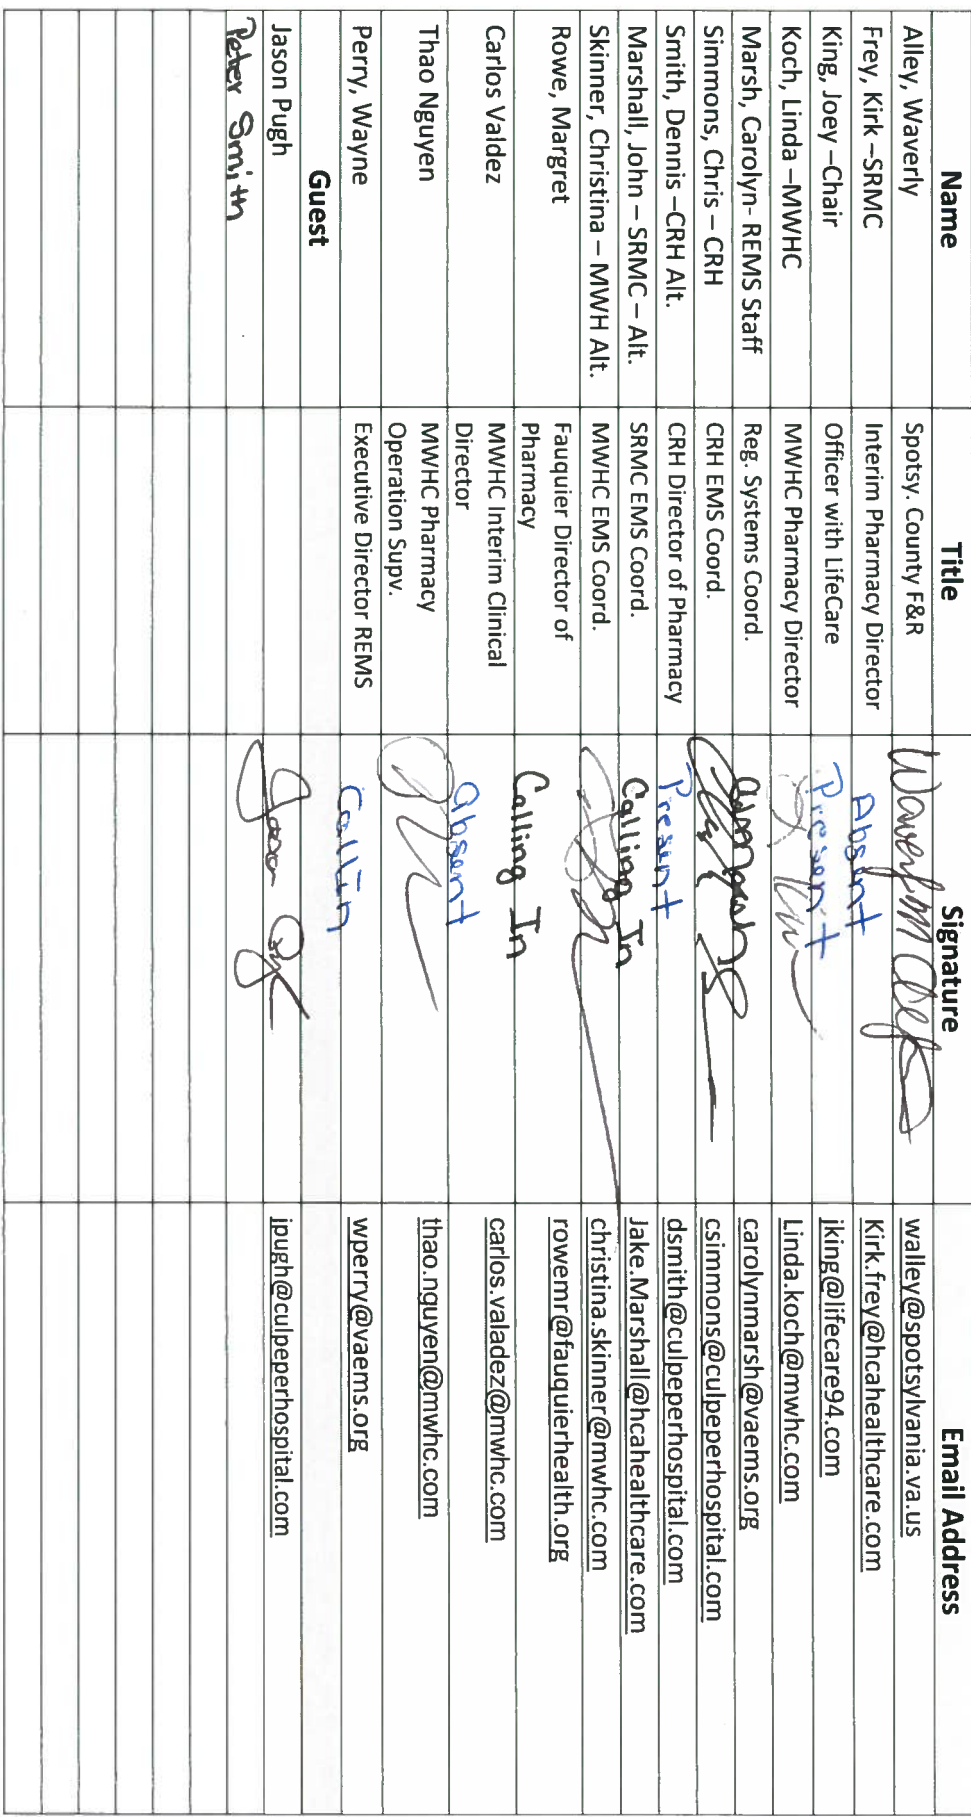 Name Title Signature Email Address
Alley, Waverly Spotsy. County F&R walley@spotsylvania.va.us
Frey, Kirk –SRMC Interim Pharmacy Director Absent Kirk.frey@hcahealthcare.com
King, Joey –Chair Officer with LifeCare Present jking@lifecare94.com
Koch, Linda –MWHC MWHC Pharmacy Director Linda.koch@mwhc.com
Marsh, Carolyn- REMS Staff Reg. Systems Coord. carolynmarsh@vaems.org
Simmons, Chris – CRH CRH EMS Coord. csimmons@culpeperhospital.com
Smith, Dennis –CRH Alt. CRH Director of Pharmacy Present dsmith@culpeperhospital.com
Marshall, John – SRMC – Alt. SRMC EMS Coord. Calling In Jake.Marshall@hcahealthcare.com
Skinner, Christina – MWH Alt. MWHC EMS Coord. christina.skinner@mwhc.com
Rowe, Margret Fauquier Director of Pharmacy Calling In rowemr@fauquierhealth.org
Carlos Valdez MWHC Interim Clinical Director absent carlos.valadez@mwhc.com
Thao Nguyen MWHC Pharmacy Operation Supv. thao.nguyen@mwhc.com
Perry, Wayne Executive Director REMS Call In wperry@vaems.org
Guest
Jason Pugh jpugh@culpeperhospital.com
Peter Smith